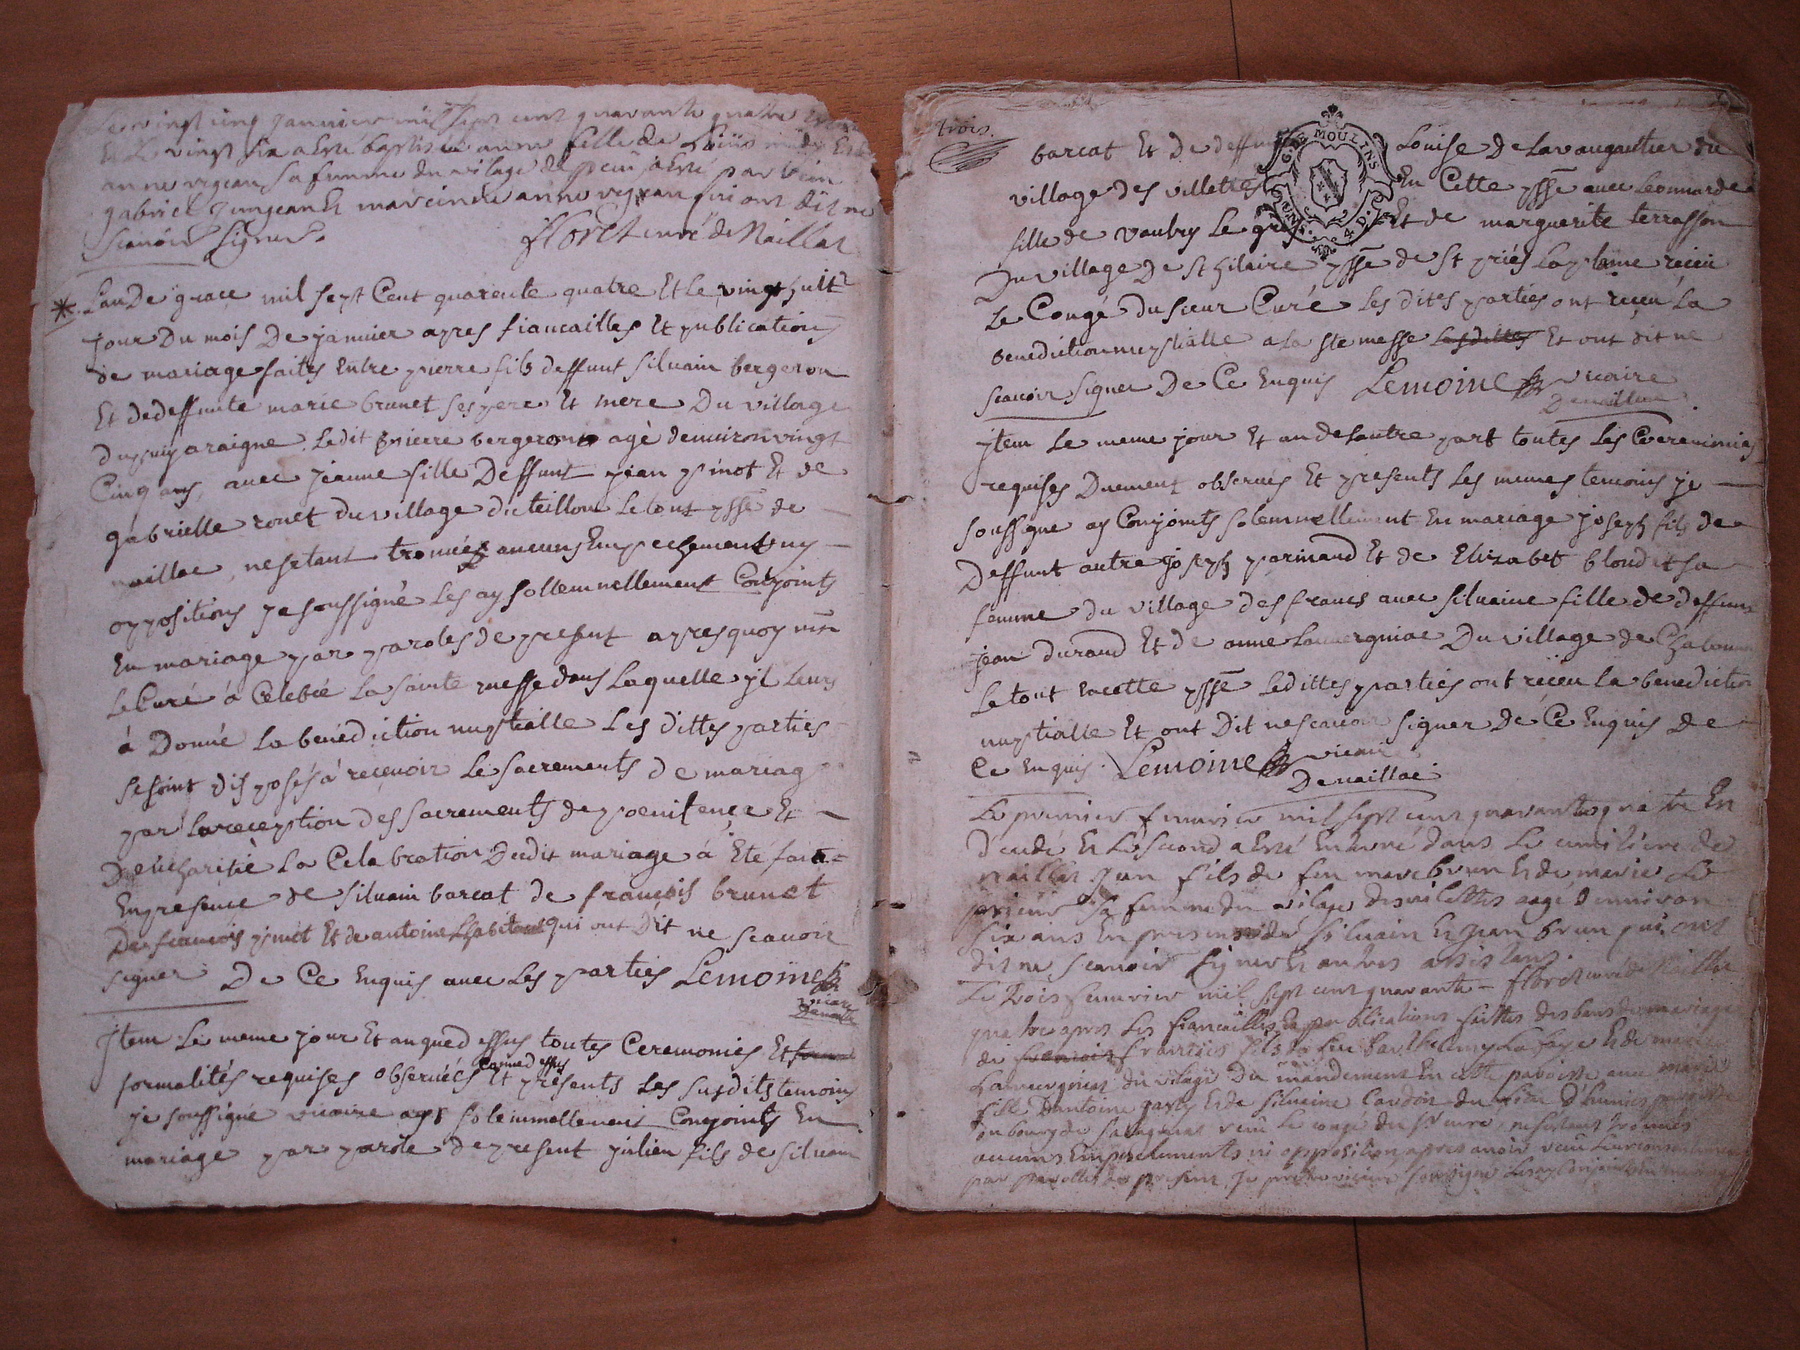 vingt cinq janvier mil sept cent quarante quatre
Et Le vingt six a Esté baptisée anne fille de
anne vrgean sa femme du vilage de a esté par
gabriel Et anne vrgean qui ont dit ne
scauoir signer. floret curé de Naillat
Lan De grace mil sept Cent quarente quatre Et le vingt huitᵉ
jour Du mois De janvier apres fiancailles Et publications
de mariage faites Entre pierre fils deffunt silvain bergeron
Et dedeffunte marie brunet ses pere Et mere Du village
du puy araigne Ledit pierre bergeron agé denviron vingt
Cinq ans, avec jeanne fille Deffunt jean pinot Et de
gabrielle rouet du village dicteillon Le tout psse de
naillac, nestant trouués aucuns Empechements ny
oppositions je soussigné Les ay sollemnellement Conjoints
En mariage par paroles de present apres quoy
Le Curé à Celebré La sainte messe dans Laquelle jl Leurs
à Donné La benédiction nuptialle Les dittes parties
se sont disposés à reçevoir Le sacrements de mariag
par La reception des sacrements de poenitençe Et
De La Celabration Dudit mariage à Eté faitte
En presençe de silvain barcat de françois brunet
De francois pinot Et de antoine Lhabitant qui ont Dit ne scavoir
signer De Ce Enquis avec Les parties Lemoine
vicaire
Denaillac
Jtem Le meme jour Et an que dessus toutes Ceremonies Et
formalités requises observées Comme dessus Et présents Les susdits temoins
je soussigné vicaire ays solemnellement Conjoints En
mariage par parole de present julien fils de silvain
trois.
barcat Et De deffunte Louise De Lavaugautier du
GEN. MOULINS
village des villettes En Cette psse avec Leonnarde
fille de vaubry Le Et de marguerite terrasson
Du village De st hilaire psse de st priés La plaine récéu
Le Congé Du sieur Curé Les dites parties ont reçeu La
Benediction nuptialle a La ste messe Lesdittes Et ont dit ne
scavoir signer De Ce Enquis Lemoine vicaire
Denaillac
jtem Le meme jour Et an de Lautre part toutes Les Ceremonies
requises Duement observés Et presents Les memes temoins je
soussigne ay Conjoints solemnellement En mariage joseph fils de
Deffunt autre joseph parinaud Et de Elizabet blondet sa
femme du village des francs avec silvaine fille de deffunt
jean durand Et de anne Lauvergniac Du village de
Le tout En cette psse Ledittes parties ont reçeu La benediction
nuptialle Et ont Dit ne scavoir signer de Ce Enquis De
Ce Enquis. Lemoine vicaire
Denaillac
Le premier feuvrier mil sept cent quarante quatre En
Et Le second a Esté Enterré dans Le cimitiere de
naillat jean fils de feu marc brun Et de marie Le
prieur sa femme du vilage des vilettes agé denviron
six ans En presence de silvain Et jean brun qui ont
dit ne scavoir signer Et autres assistans.
Le trois feuvrier mil sept cent quarante - floret curé de Naillat
quatre apres Les fiancailles Et publications faittes des bans de mariage
de francois fils de feu barthelemy Lafaye Et de marie
Lauvergniat du vilage du mandement En cette paroisse avec marie
fille Dantoine Et de silvaine Cardon du
du bourg de receu Le congé du sr curé, nestant trouvés
aucuns Empechements ni opposition, apres avoir receu Leur consentement
par parolles de present Je vicaire soussigné Les ay conjoints En mariage